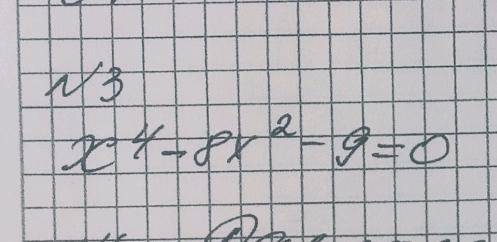 N3
x⁴-8x²-9=0